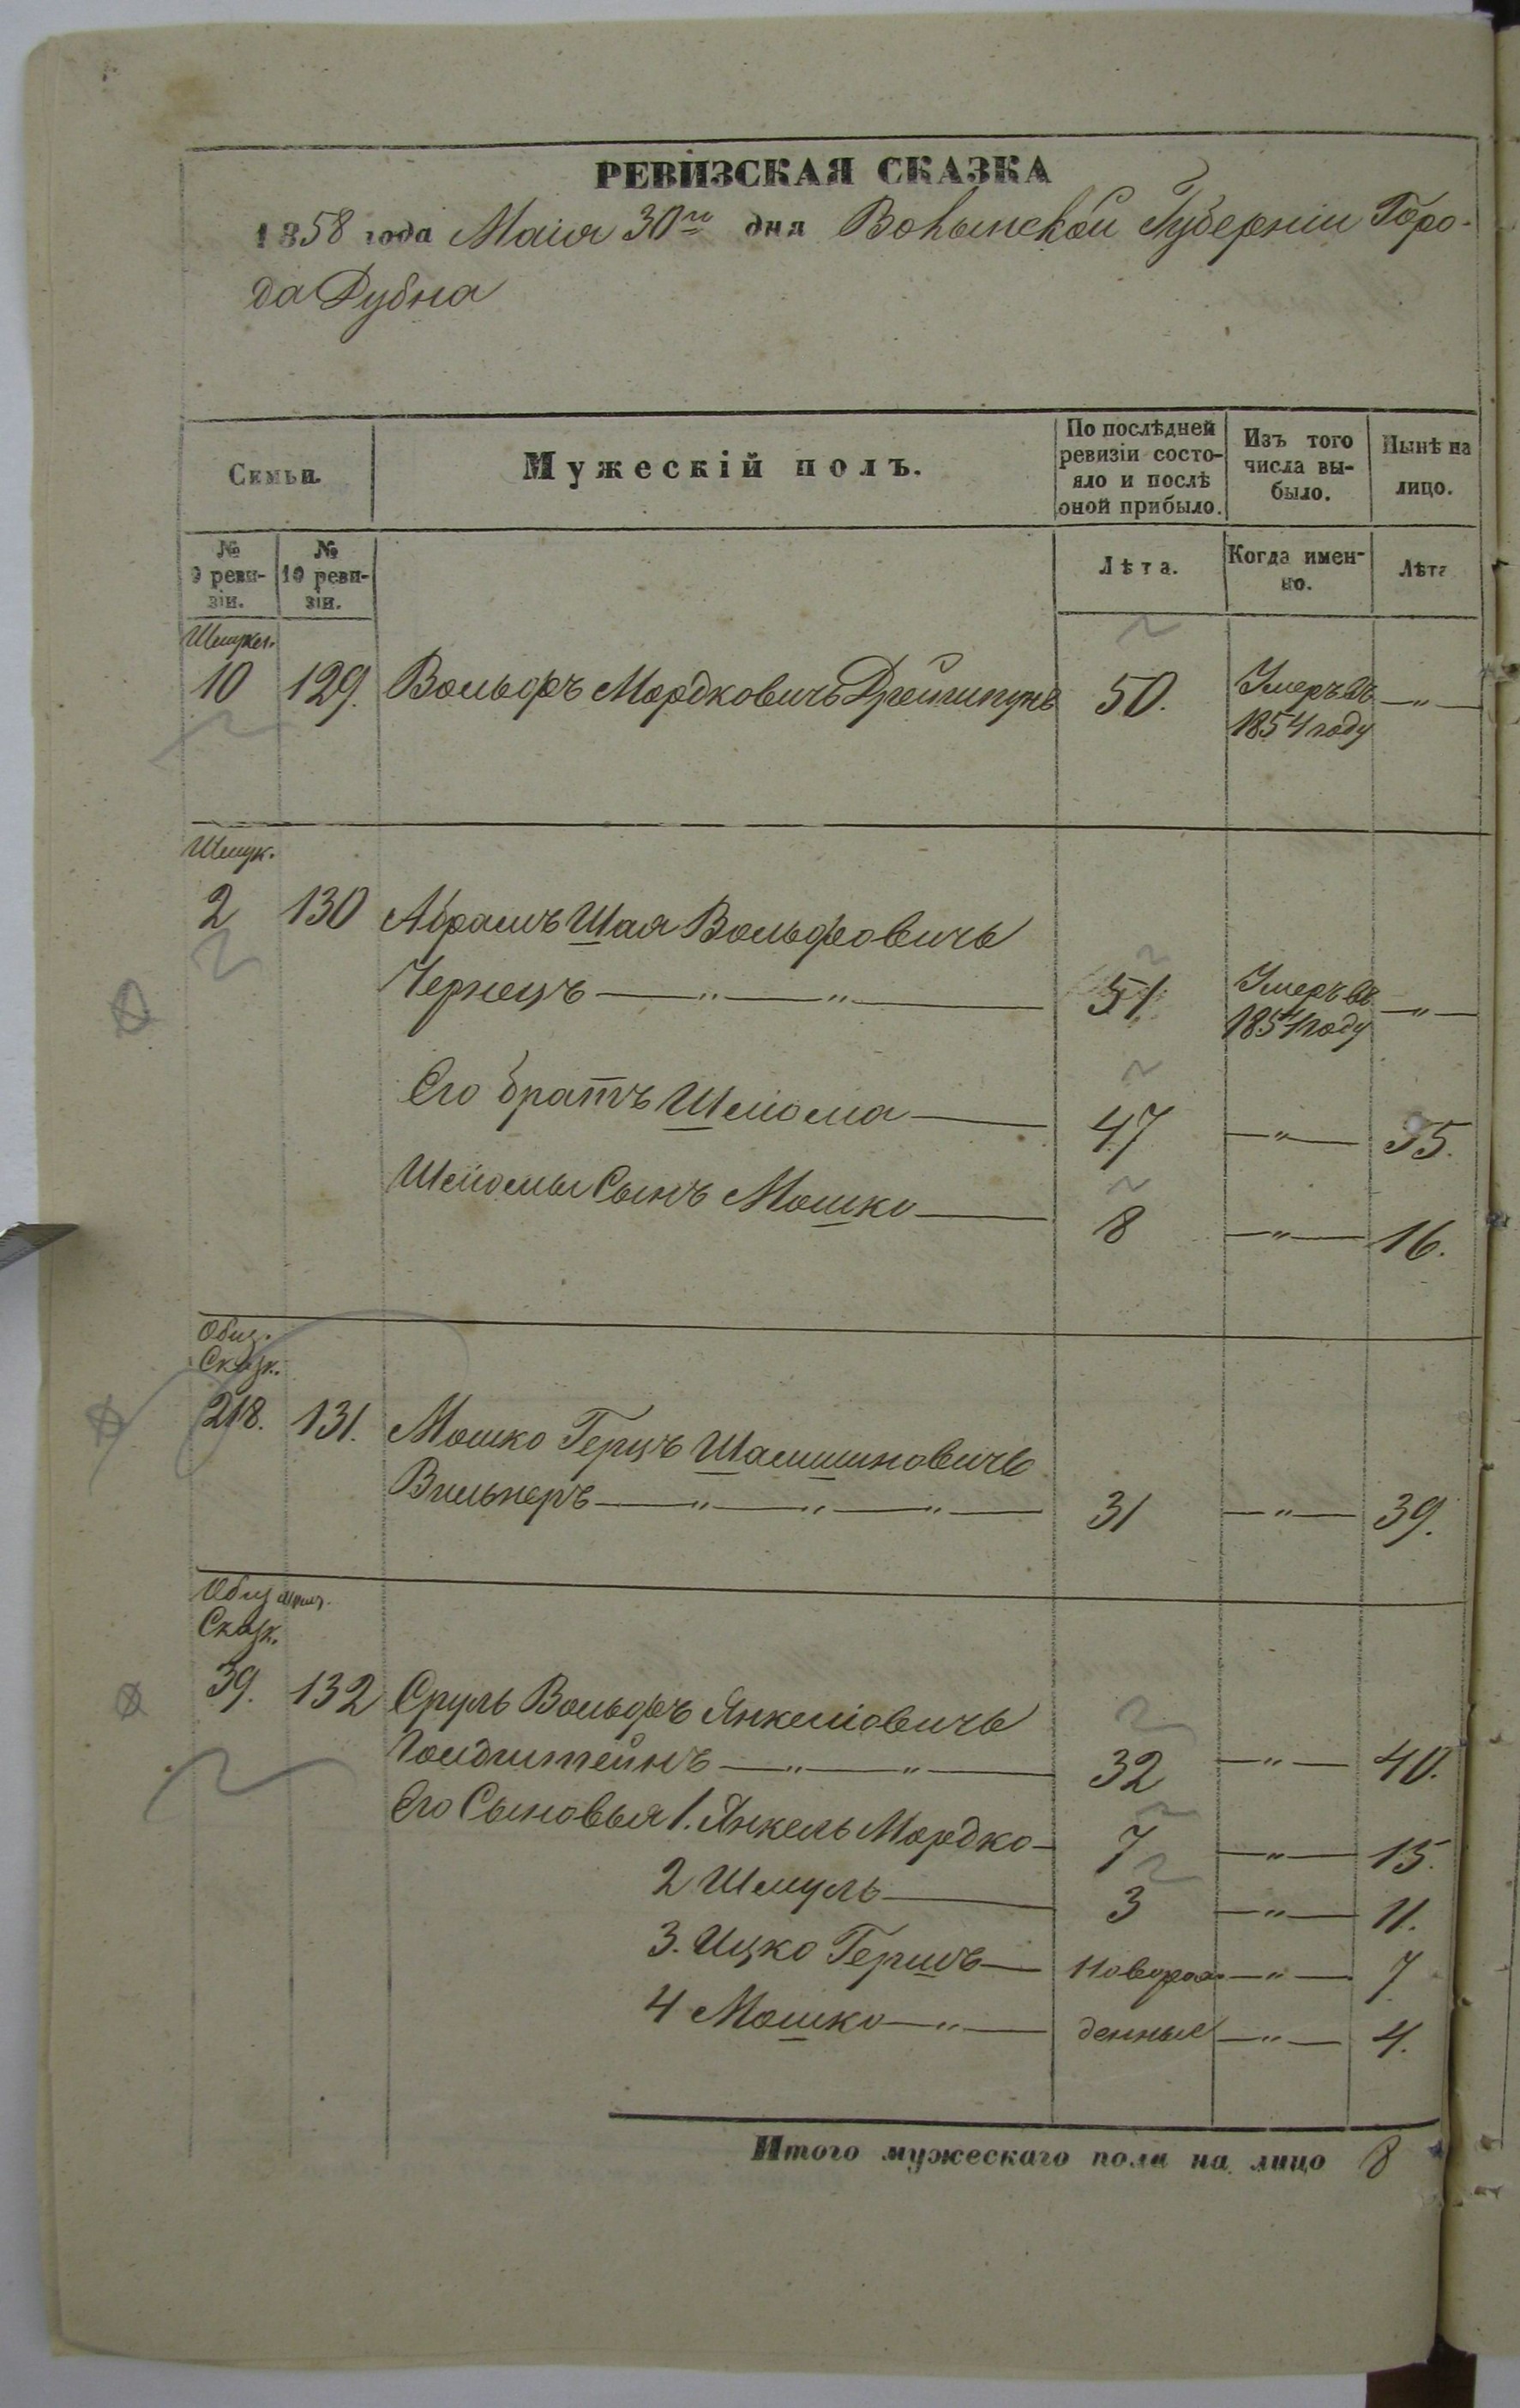 РЕВИЗСКАЯ СКАЗКА
1858 года Маія 30го дня Волынской Губерніи Горо-
да Дубна
Семьи.
Мужескій полъ.
По послѣдней ревизіи состояло и послѣ оной прибыло.
Изъ того числа выбыло.
Нынѣ на лицо.
№ 9 ревизіи.
№ 10 ревизіи.
Лѣта.
Когда именно.
Лѣта
10 129. Вольфъ Мордковичъ 50. Умеръ въ —"—
1854 году
2 130 Абрамъ Шая Вольфовичъ
Чернецъ —"—"— 51 Умеръ въ —"—
1854 году
Его братъ Шліома — 47 —"— 55.
Шліомы Сынъ Мошко — 8 —"— 16.
Общ.
Сказк.
218. 131. Мошко Герцъ Шамшиновичъ
Вильнеръ —"—"—"— 31 —"— 39.
Общ
Сказк.
39. 132 Сруль Вольфъ Янкеліовичъ
Голдштейнъ —"—"— 32 —"— 40.
Его Сыновья 1. Янкель Мордко — 7 —"— 15.
2 Шмуль — 3 —"— 11.
3. Ицко Гершъ — новорож- —"— 7
4 Мошко —"— денные —"— 4.
Итого мужескаго пола на лицо 8